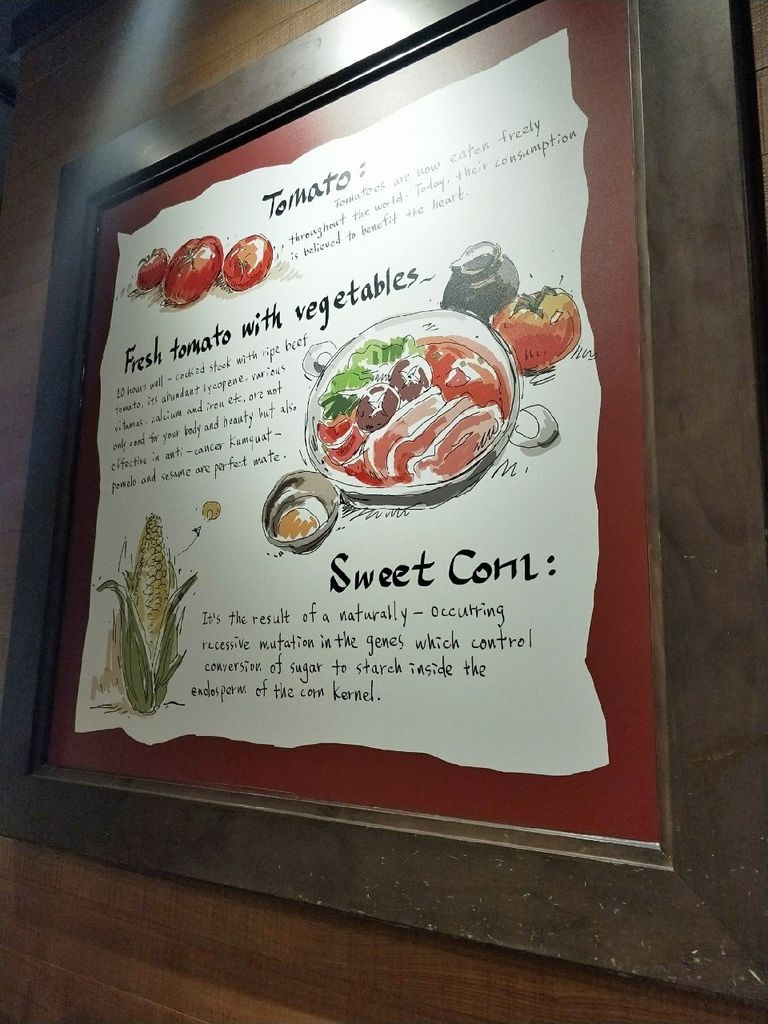 Tomato:
Tomatoes are now eaten freely
throughout the world. Today, their consumption
is believed to benefit the heart.
Fresh tomato with vegetables~
10 hours well-cooked stock with ripe beef
tomato, its abundant lycopene, various
vitamas, calcium and iron etc, are not
only good for your body and beauty but also
effective in anti-cancer Kumquat-
pomelo and sesame are perfect mate.
Sweet Corn:
It's the result of a naturally-occurring
recessive mutation in the genes which control
conversion of sugar to starch inside the
endosperm of the corn kernel.